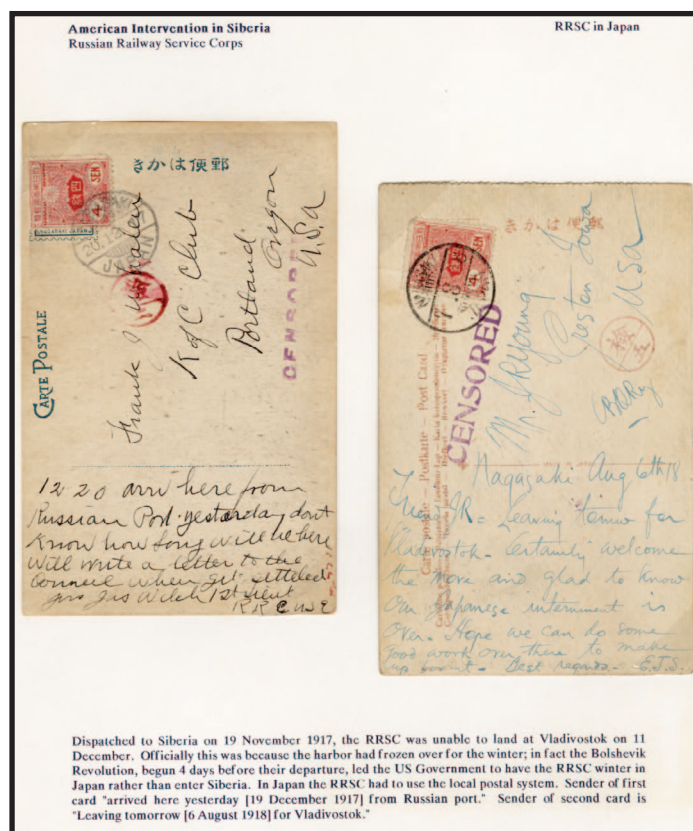 American Intervention in Siberia
Russian Railway Service Corps
RRSC in Japan
きかは便郵
4 SEN
JAPAN
CARTE POSTALE
Frank J
K of C Club
Portland
Oregon
U.S.a
CENSORED
12-20 arrv here from
Russian Port yesterday dont
Know how long will be here
Will write a letter to the
Council when get settled
Jas Welch 1st Lieut
R R C U S E
きかは便郵
4
CENSORED
Mr. J R Young
Creston Iowa
USA
Carte postale - Postkarte - Post Card
Nagasaki Aug 6th 18.
Friend JR = Leaving tomw for
Vladivostok - Certainly welcome
the move and glad to know
our Japanese internment is
over. Hope we can do some
good work over there to make
up for it - Best regards - E.J.S.
Dispatched to Siberia on 19 November 1917, the RRSC was unable to land at Vladivostok on 11
December. Officially this was because the harbor had frozen over for the winter; in fact the Bolshevik
Revolution, begun 4 days before their departure, led the US Government to have the RRSC winter in
Japan rather than enter Siberia. In Japan the RRSC had to use the local postal system. Sender of first
card "arrived here yesterday [19 December 1917] from Russian port." Sender of second card is
"Leaving tomorrow [6 August 1918] for Vladivostok."